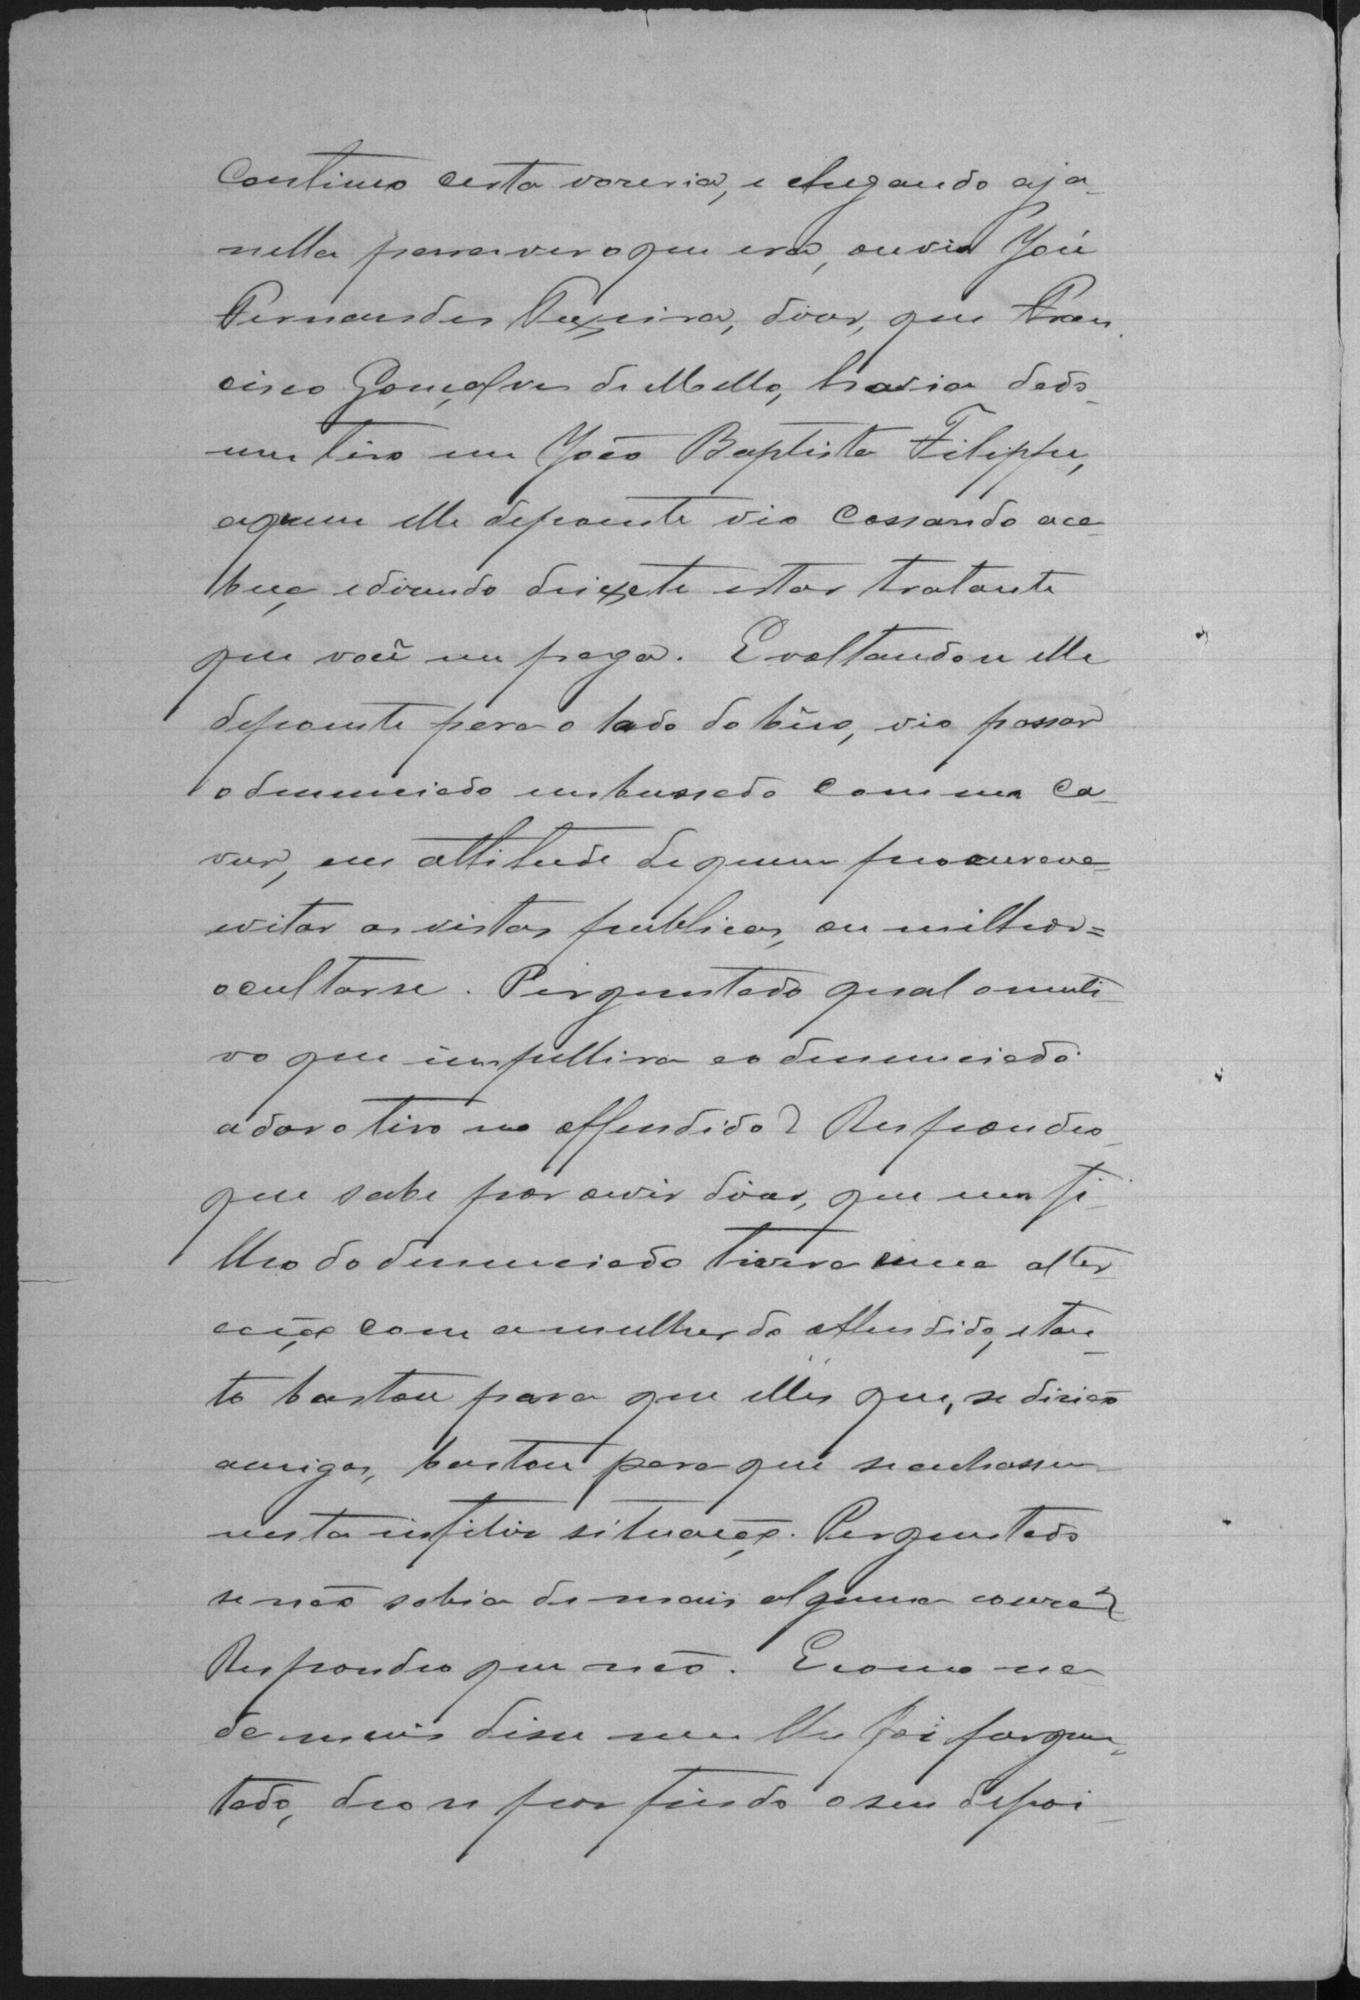 continuo certa vozeria, e chegando a ja-
nella para ver o que era, ouvio José
Fernandes Teixeira, dizer, que Fran-
cisco Gonçalves de Mello, havia dado
um tiro em João Baptista Filippe,
a quem elle depoente vio cossando a ca-
beça e dizendo deixete estar tratante
que você me paga. E voltando-se elle
depoente para o lado do bêco, vio passar
o denunciado embussado com um ca-
vur, em attitude de quem procurava
evitar as vistas publicas, ou milhor=
ocultarse. Perguntado qual o muti-
vo que impellira ao denunciado
a dar o tiro no offendido? Respondeo
que sabe por ouvir dizer, que um fi-
lho do denunciado tivera uma alter-
cação com a mulher do offendido, e tan-
to bastou para que elles que, se dizião
amigos, bastou para que se achassem
nesta infeliz situação. Perguntado
se não sabia de mais alguma couza?
Respondeo que não. E como na-
da mais disse nem lhe foi pergun-
tado, deo-se por findo o seu depoi-